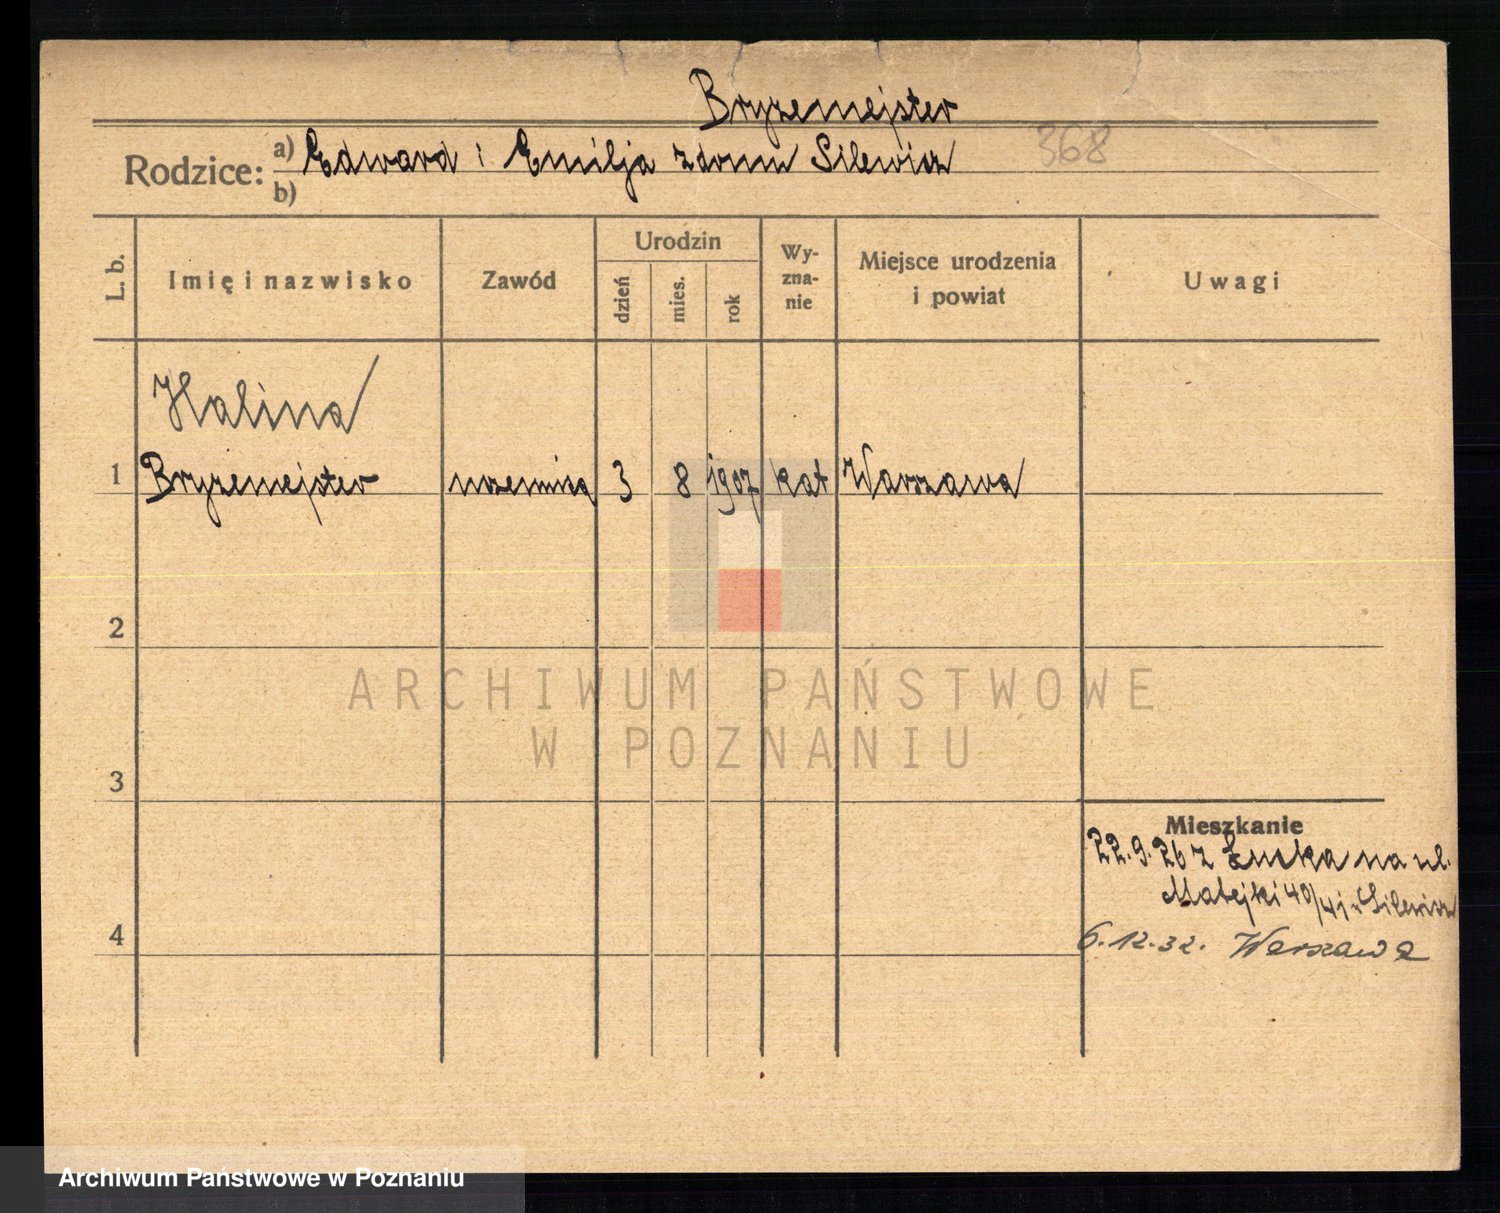 Bryzemejster
368
Rodzice: a) Edward i Emilja z domu Silewicz
b)
L. b.
Imię i nazwisko
Zawód
Urodzin
dzień
mies.
rok
Wy-
zna-
nie
Miejsce urodzenia
i powiat
Uwagi
Halina
1 Bryzemejster uczennica 3 8 1907 kat Warszawa
2
3
4
Mieszkanie
22.9.26 z Łucka na ul.
Matejki 40/41 Silewicz
6.12.32. Warszawa
ARCHIWUM PAŃSTWOWE
W POZNANIU
Archiwum Państwowe w Poznaniu